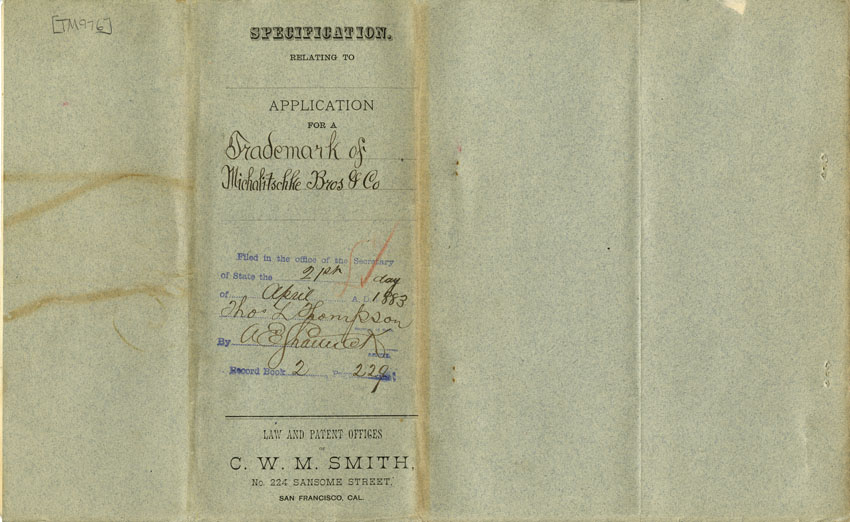 [TM976]
SPECIFICATION.
RELATING TO
APPLICATION
FOR A
Trademark of
Michalitschke Bros & Co
Filed in the office of the Secretary
of State the 21st day
of April A. D. 1883
Thos L Thompson
By
Record Book 2
LAW AND PATENT OFFICES
OF
C. W. M. SMITH,
No. 224 SANSOME STREET,
SAN FRANCISCO, CAL.